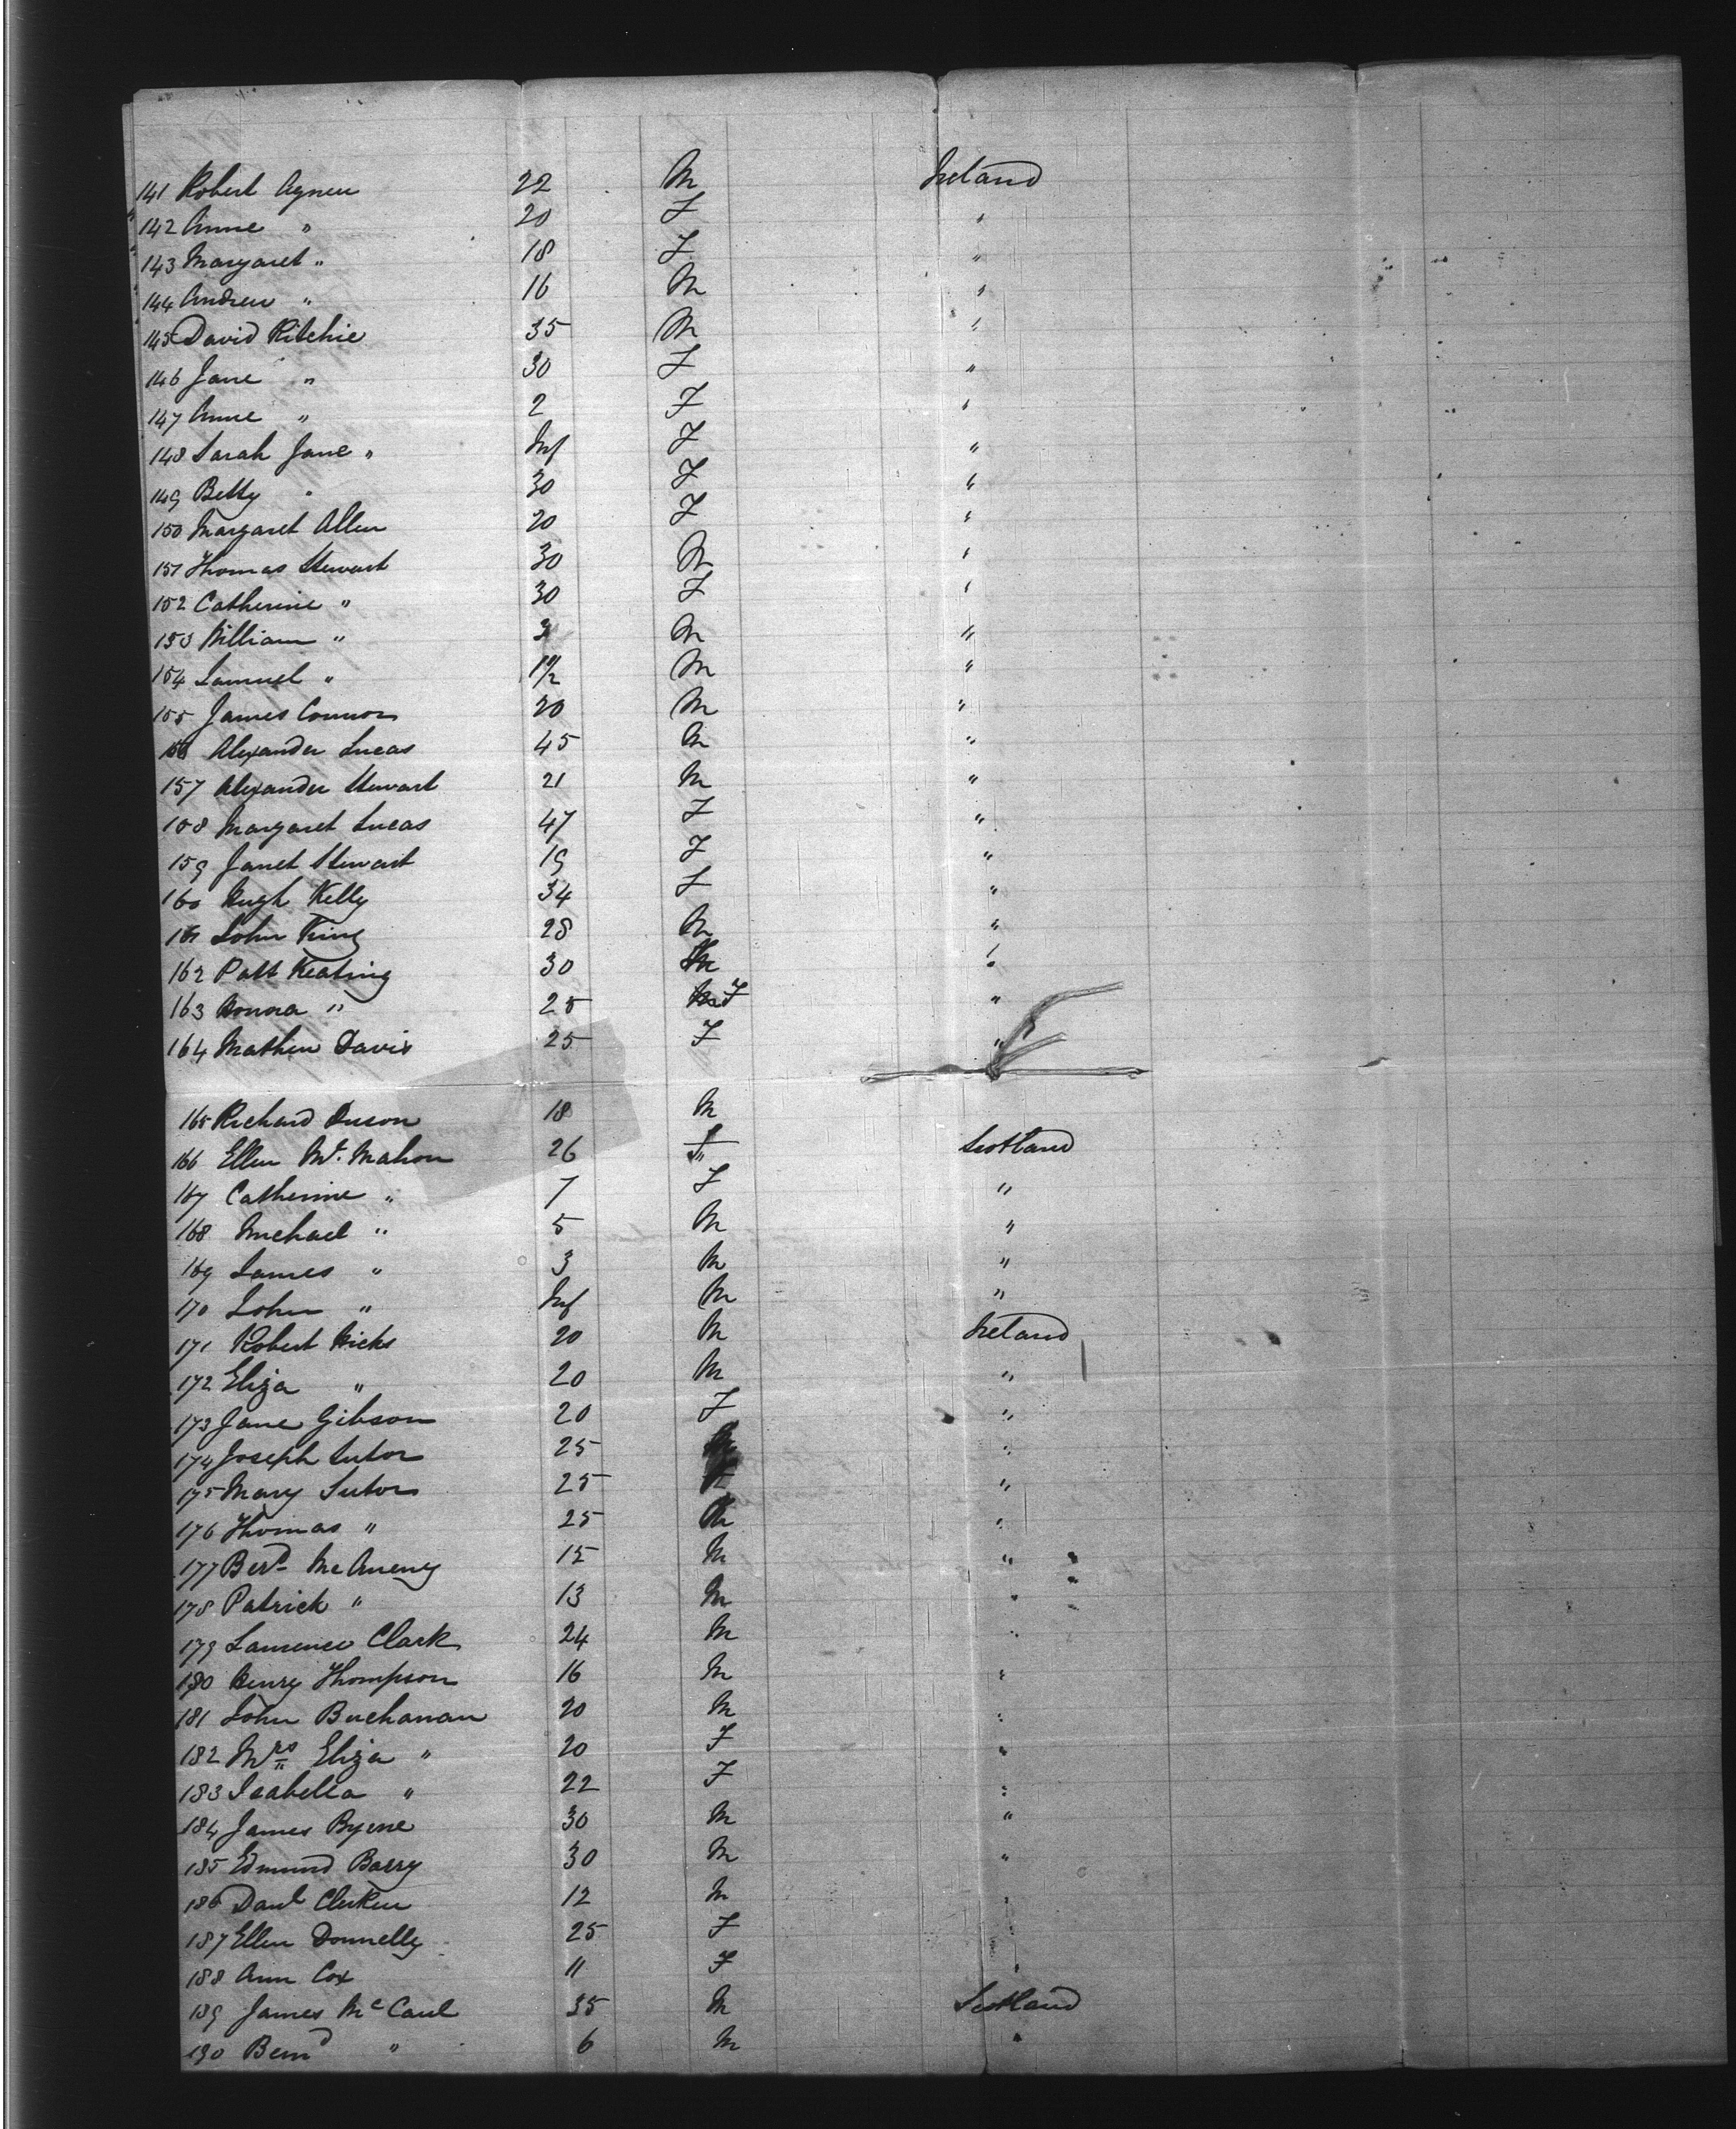 141 Robert Agnew 22 M Ireland
142 Anne " 20 F "
143 Margaret " 18 F "
144 Andrew " 16 M "
145 David Ritchie 35 M "
146 Jane " 30 F "
147 Anne " 2 F "
148 Sarah Jane " Inf F "
149 Betty " 30 F "
150 Margaret Allen 20 F "
151 Thomas Stewart 30 M "
152 Catherine " 30 F "
153 William " 3 M "
154 Samuel " 1 1/2 M "
155 James Connor 20 M "
156 Alexander Lucas 45 M "
157 Alexander Stewart 21 M "
158 Margaret Lucas 47 F "
159 Janet Stewart 19 F "
160 Hugh Kelly 34 F "
161 John King 28 M "
162 Patt Keating 30 M "
163 Honora " 25 F "
164 Mathew Davis 25 F "
165 Richard 18 M
166 Ellen Mc. Mahon 26 F Scotland
167 Catherine " 7 F "
168 Michael " 5 M "
169 James " 3 M "
170 John " Inf M "
171 Robert Hicks 20 M Ireland
172 Eliza " 20 M "
173 Jane Gibson 20 F "
174 Joseph Sutor 25 "
175 Mary Sutor 25 "
176 Thomas " 25 M "
177 Berd McAneny 15 M "
178 Patrick " 13 M "
179 Laurence Clark 24 M "
180 Henry Thompson 16 M "
181 John Buchanan 20 M "
182 Mrs Eliza " 20 F "
183 Isabella " 22 F "
184 James Byrne 30 M "
185 Edmund Barry 30 M "
186 Danl Clerken 12 M "
187 Ellen Donnelly 25 F "
188 Ann Cox 11 F "
189 James McCaul 35 M Scotland
190 Bernd " 6 M "